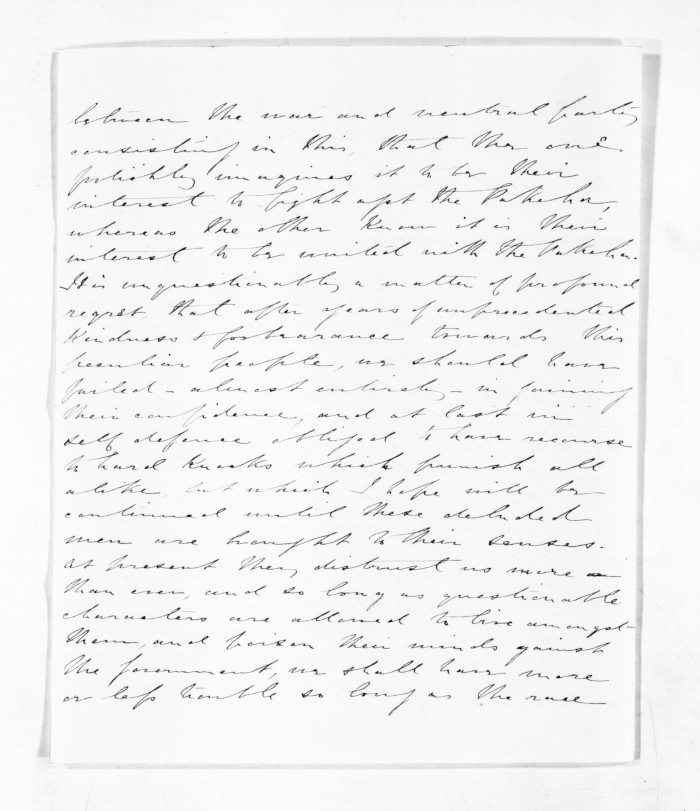 between the war and neutral party
consisting in this, that the one
foolishly imagines it to be their
interest to fight agst the Pakeha,
whereas the other know it is their
interest to be united with the Pakeha.
It is unquestionably a matter of profound
regret that after years of unprecedented
kindness & forbearance towards this
peculiar people, we should have
failed - almost entirely - in gaining
their confidence, and at last in
self defence obliged to have recourse
to hard knocks which punish all
alike, but which I hope will be
continued until these deluded
men are brought to their senses.
At present they distrust us more
than ever, and so long as questionable
characters are allowed to live amongst
them, and poison their minds against
the Government, we shall have more
or less trouble so long as the race